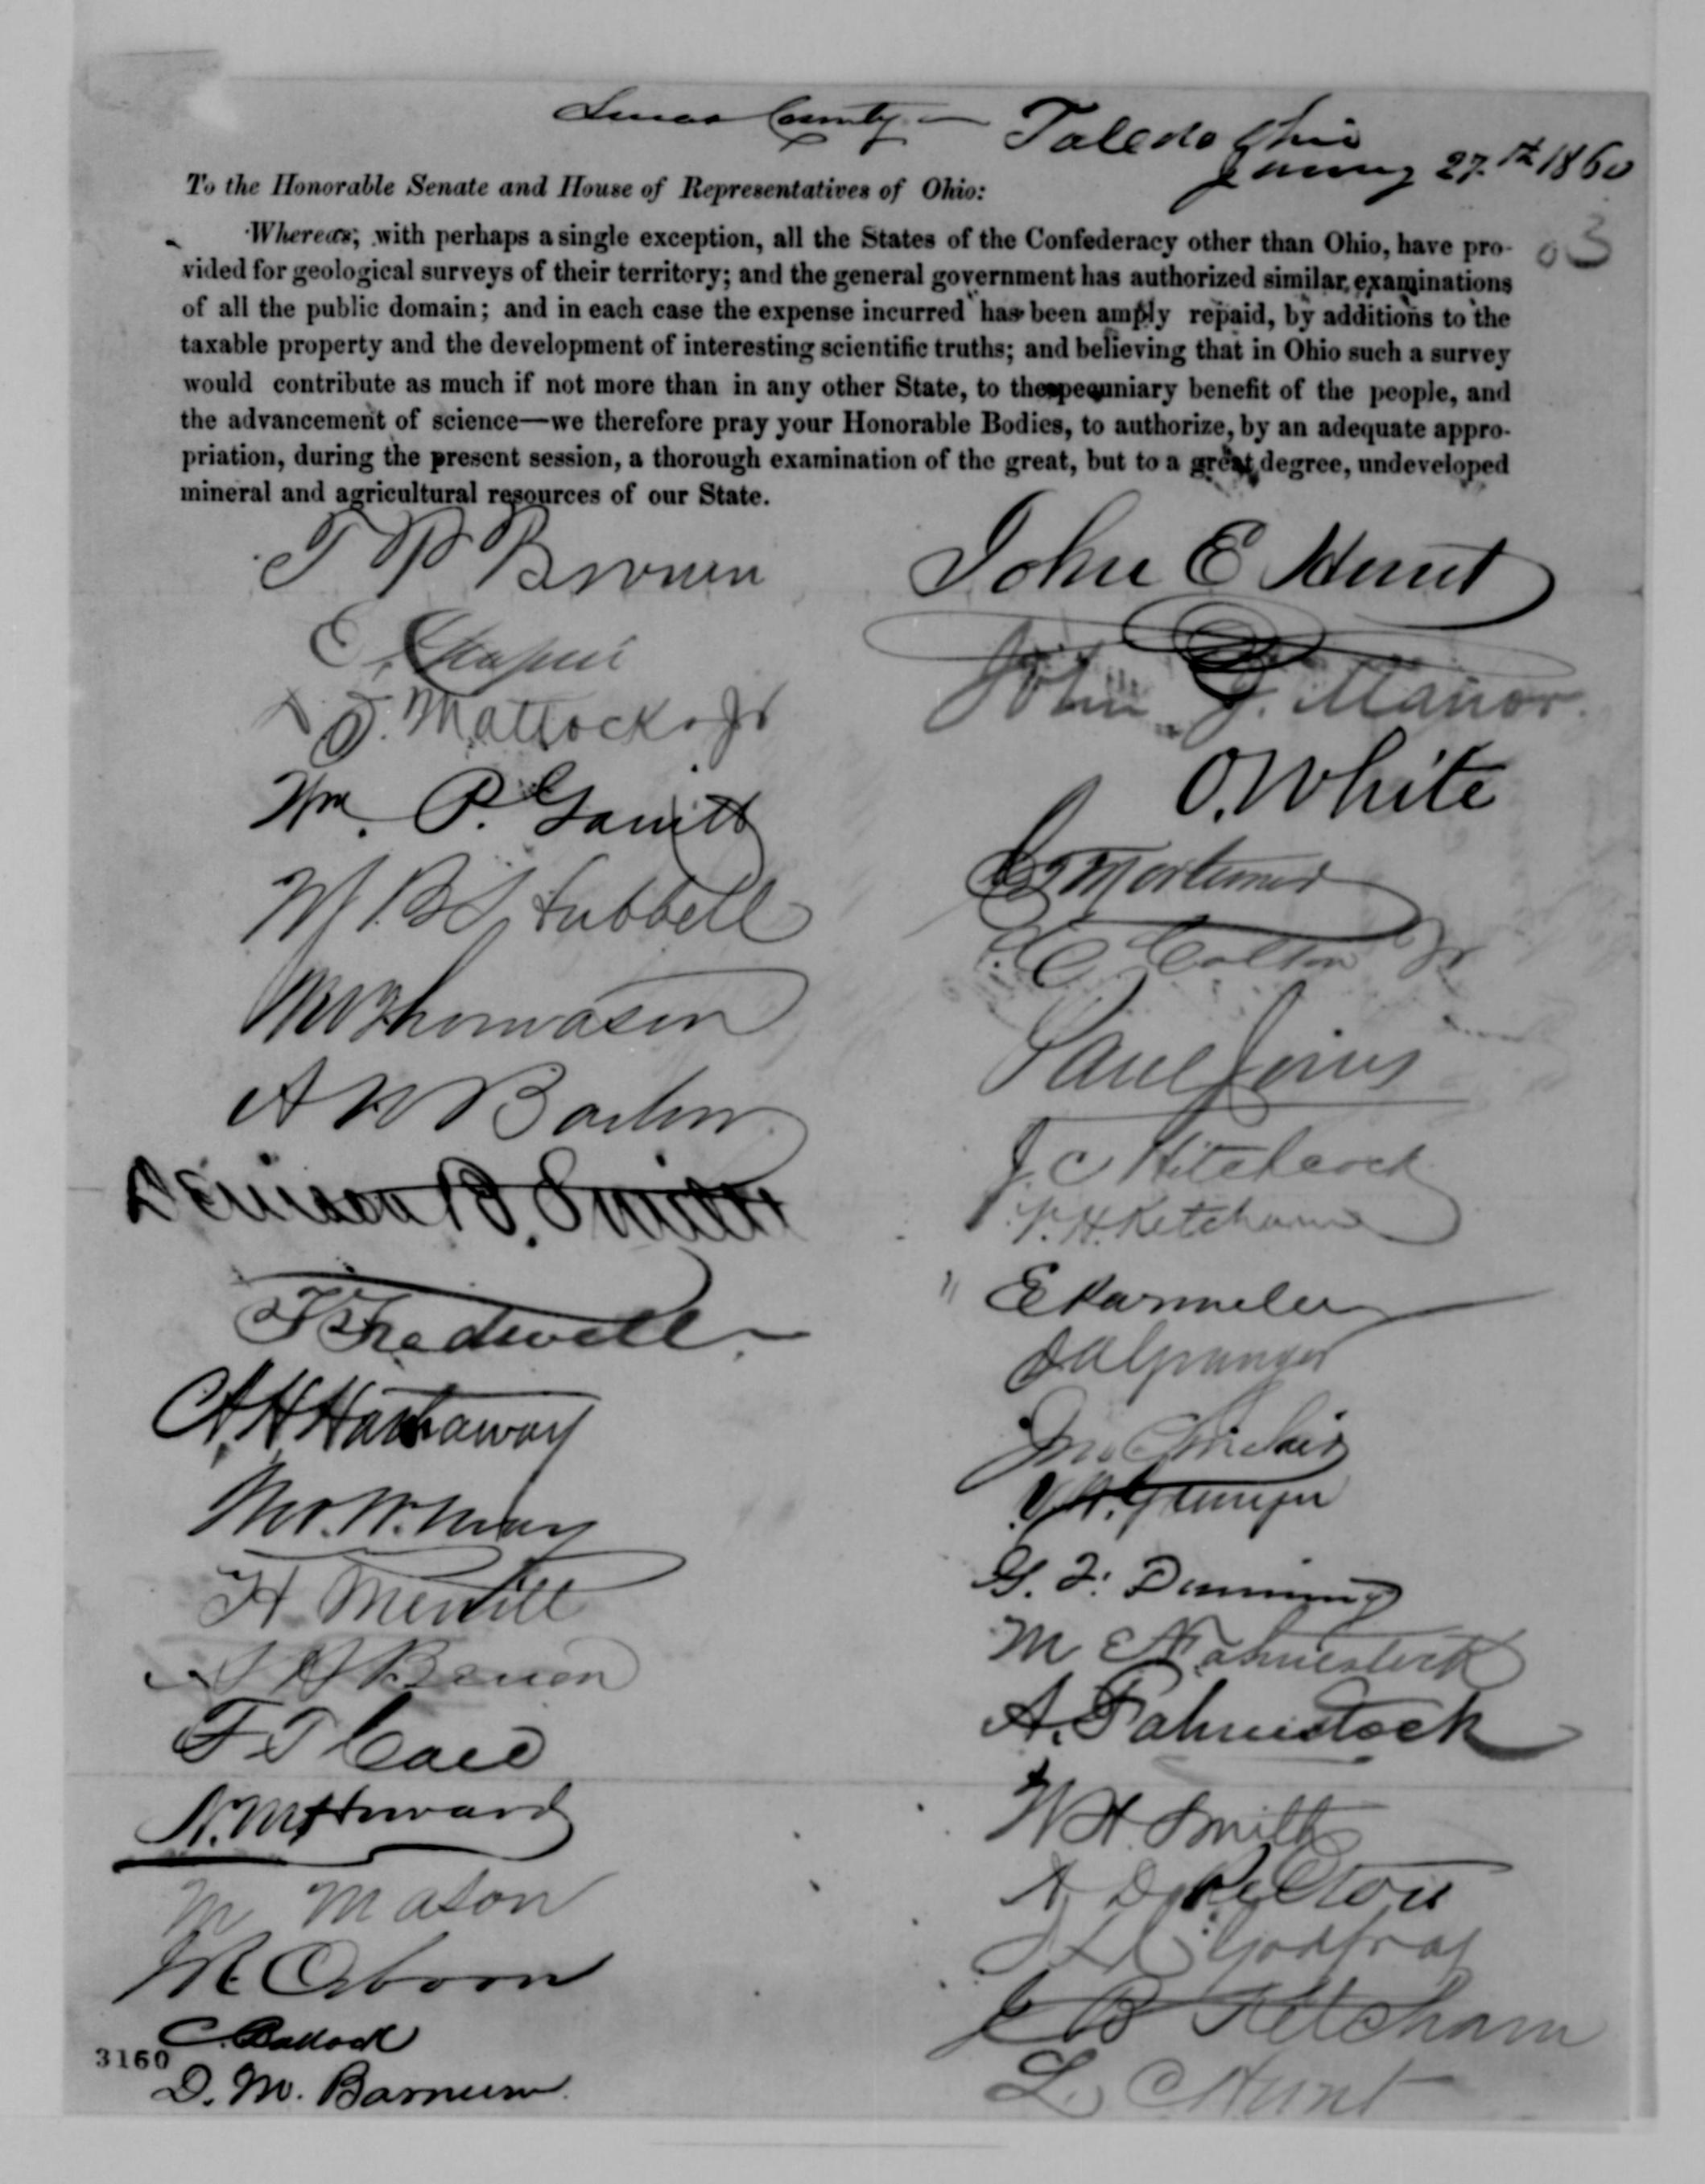 Lucas County — Toledo Ohio
27th 1860
To the Honorable Senate and House of Representatives of Ohio:
03
Whereas, with perhaps a single exception, all the States of the Confederacy other than Ohio, have pro-
vided for geological surveys of their territory; and the general government has authorized similar examinations
of all the public domain; and in each case the expense incurred has been amply repaid, by additions to the
taxable property and the development of interesting scientific truths; and believing that in Ohio such a survey
would contribute as much if not more than in any other State, to the pecuniary benefit of the people, and
the advancement of science—we therefore pray your Honorable Bodies, to authorize, by an adequate appro-
priation, during the present session, a thorough examination of the great, but to a great degree, undeveloped
mineral and agricultural resources of our State.
T P Brown
Mattocks Jr
Wm. P.
Hubbell
Thomason
A W
Denison B. Smith
Tredwell
A. H. Hathaway
H Merrill
F. T. Case
N. M. Howard
M Mason
Osborn
C. Ballock
D. M. Barnum
John E Hunt
John J. Manor
O. White
Mortimer
C. Colton Jr
Paul Jones
J. C Hitchcock
V. H. Ketcham
Granger
Jno Sinclair
G. F. Dunning
M E Fahnestock
A. Fahnestock
W H. Smith
A D Pelton
J B Ketcham
L. C Hunt
3160